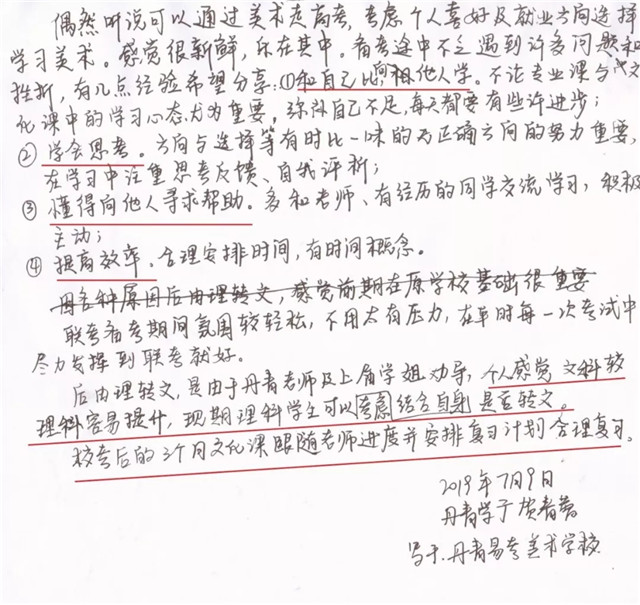 偶然听说可以通过美术走高考，考虑个人喜好及就业方向选择
学习美术。感觉很新鲜，乐在其中。备考途中不乏遇到许多问题和
挫折，有几点经验希望分享：①和自己比，向他人学。不论专业课与文
化课中的学习心态尤为重要，弥补自己不足，每天都要有些许进步；
②学会思考。方向与选择等有时比一味的为正确方向的努力重要，
在学习中注重思考反馈、自我评析；
③懂得向他人寻求帮助。多和老师、有经历的同学交流学习，积极
主动；
④提高效率，合理安排时间，有时间概念。
因各种原因后由理转文，感觉前期在原学校基础很重要
联考备考期间氛围较轻松，不用太有压力，在平时每一次考试中
尽力发挥到联考就好。
后由理转文，是由于丹青老师及上届学姐劝导，个人感觉文科较
理科容易提升，现期理科学生可以考虑结合自身是否转文。
校考后的3个月文化课跟随老师进度并安排复习计划合理复习。
2019年7月9日
丹青学子
写于.丹青易考美术学校